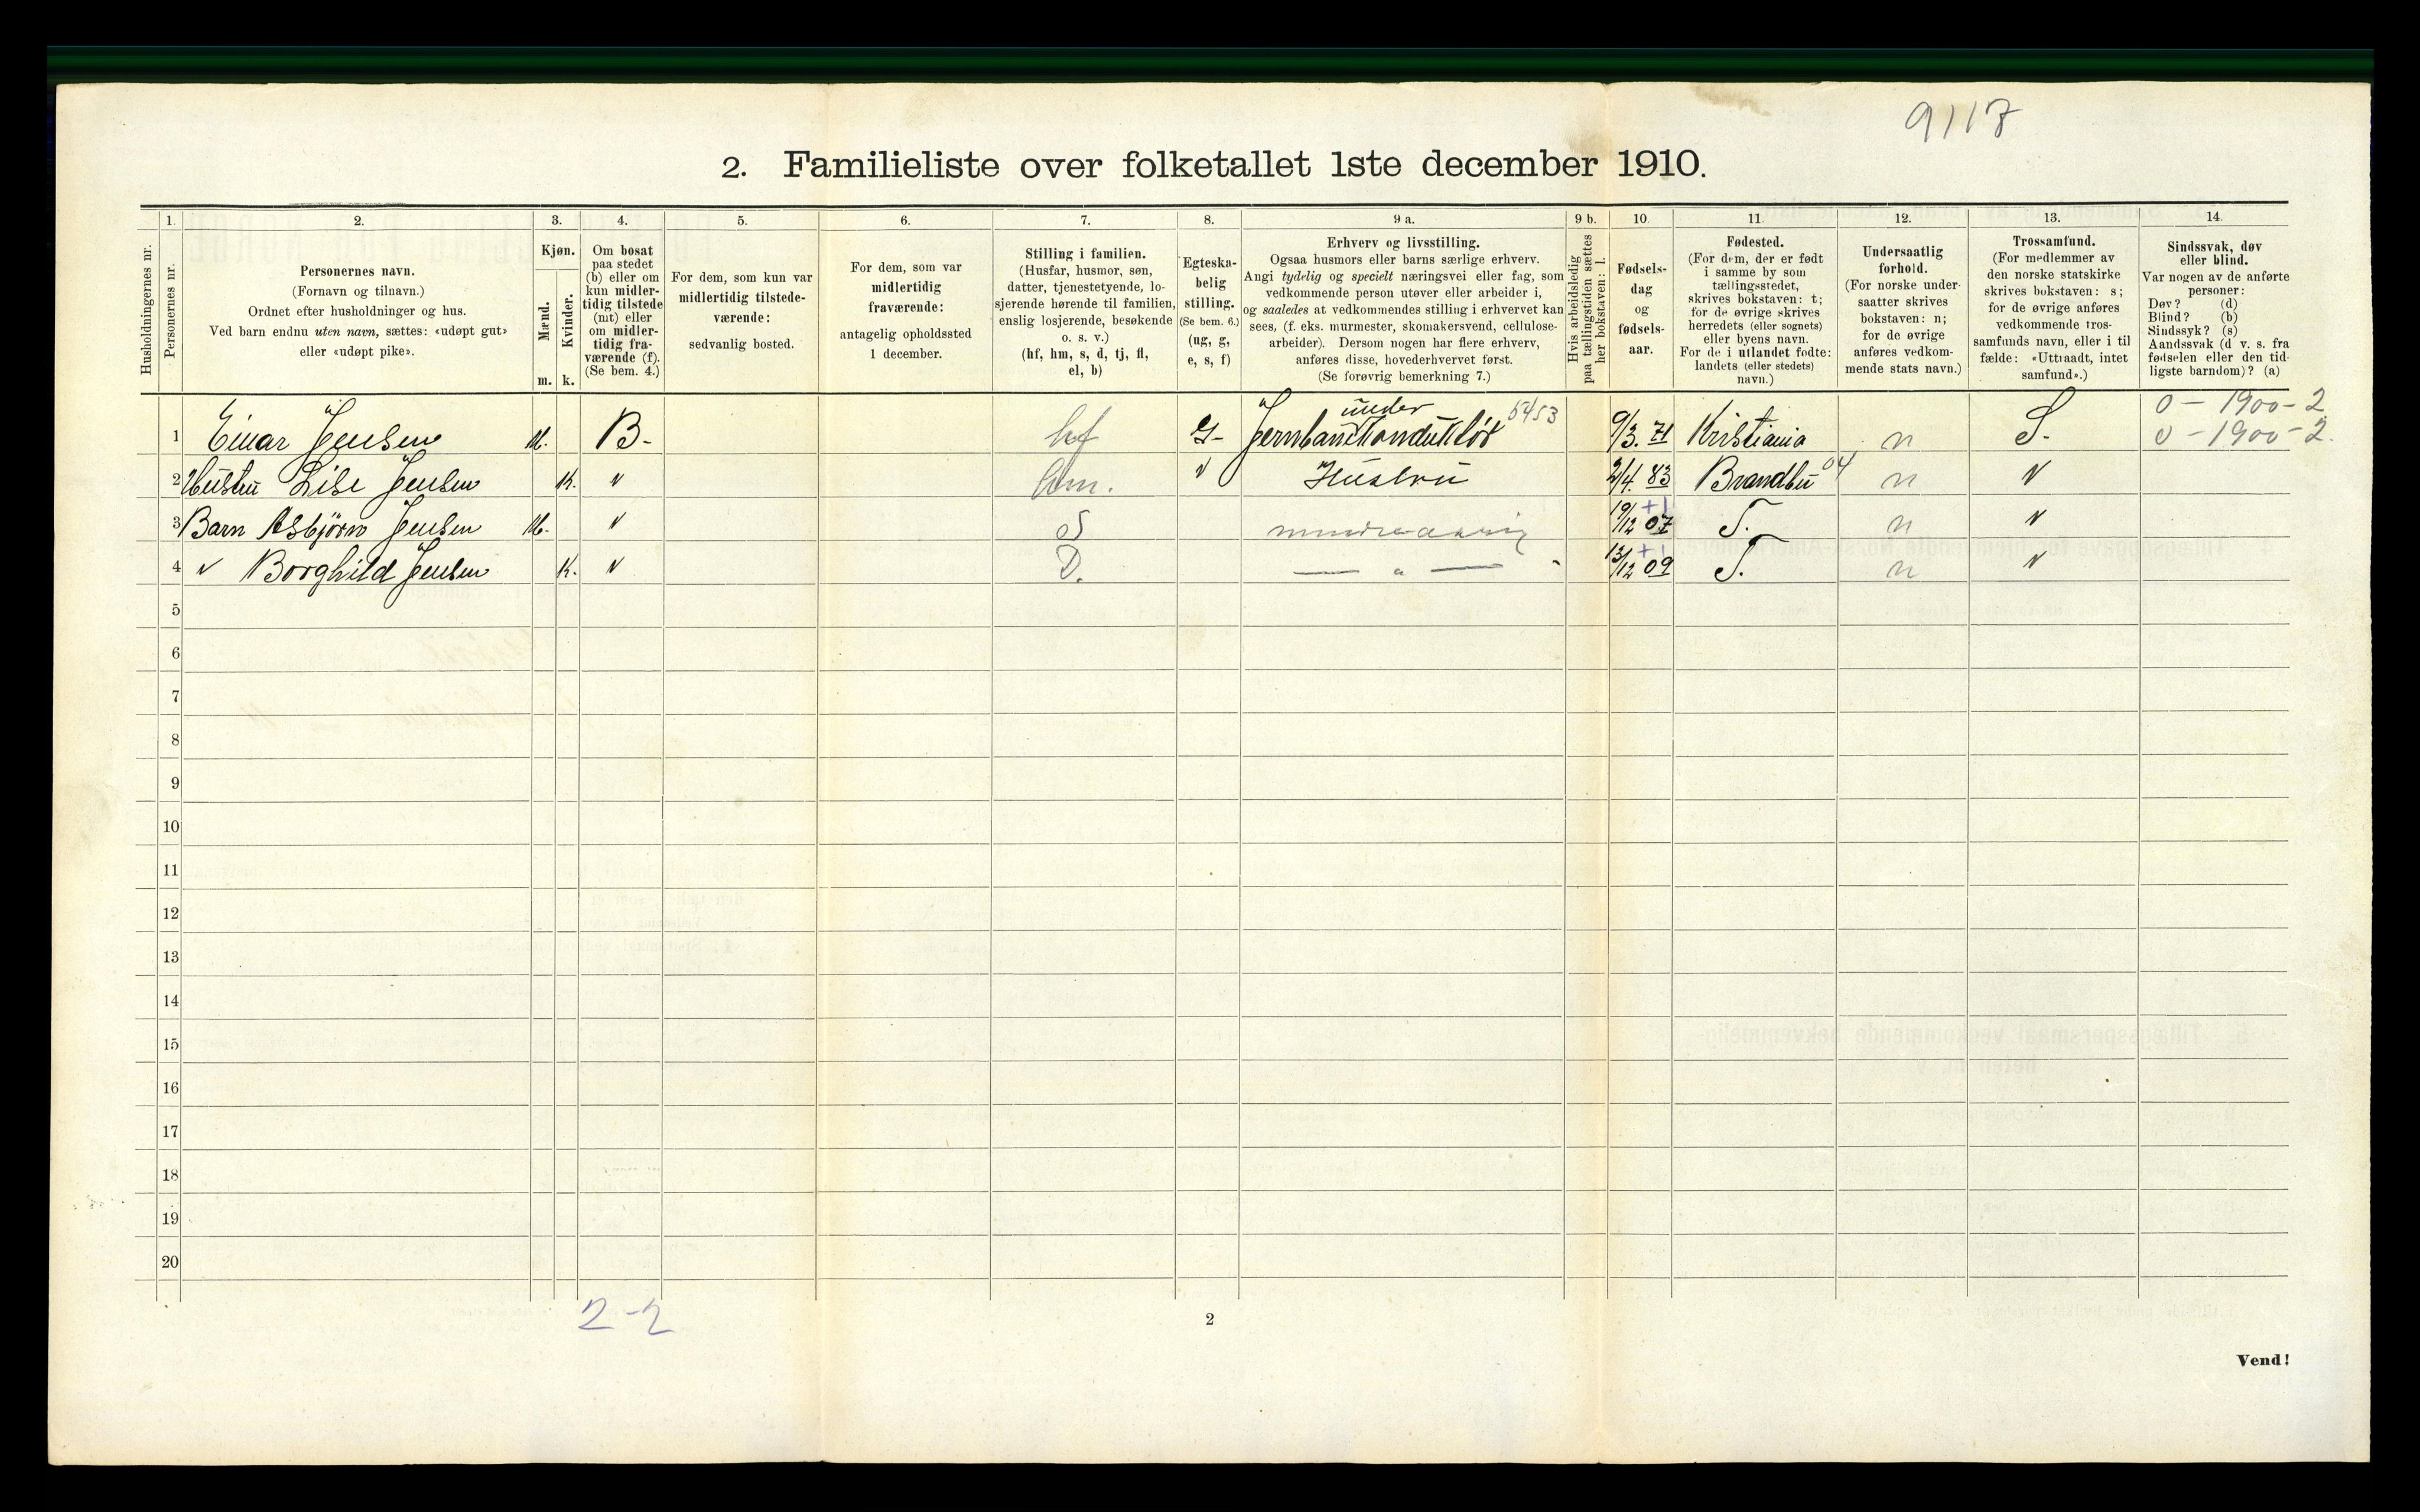 9117
2. Familieliste over folketallet 1ste december 1910.
Husholdningernes nr.
1.
Personernes nr.
2.
Personernes navn.
(Fornavn og tilnavn.)
Ordnet efter husholdninger og hus.
Ved barn endnu uten navn, sættes: «udøpt gut»
eller «udøpt pike».
3.
Kjøn.
Mænd.
m.
Kvinder.
k.
4.
Om bosat
paa stedet
(b) eller om
kun midler-
tidig tilstede
(mt) eller
om midler-
tidig fra-
værende (f).
(Se bem. 4.)
5.
For dem, som kun var
midlertidig tilstede-
værende:
sedvanlig bosted.
6.
For dem, som var
midlertidig
fraværende:
antagelig opholdssted
1 december.
7.
Stilling i familien.
(Husfar, husmor, søn,
datter, tjenestetyende, lo-
sjerende hørende til familien,
enslig losjerende, besøkende
o. s. v.)
(hf, hm, s, d, tj, fl,
el, b)
8.
Egteska-
belig
stilling.
(Se bem. 6.)
(ug, g,
e, s, f)
9 a.
Erhverv og livsstilling.
Ogsaa husmors eller barns særlige erhverv.
Angi tydelig og specielt næringsvei eller fag, som
vedkommende person utøver eller arbeider i,
og saaledes at vedkommendes stilling i erhvervet kan
sees, (f. eks. murmester, skomakersvend, cellulose-
arbeider). Dersom nogen har flere erhverv,
anføres disse, hovederhvervet først.
(Se forøvrig bemerkning 7.)
9 b.
Hvis arbeidsledig
paa tællingstiden sættes
her bokstaven: l.
10.
Fødsels-
dag
og
fødsels-
aar.
11.
Fødested.
(For dem, der er født
i samme by som
tællingsstedet,
skrives bokstaven: t;
for de øvrige skrives
herredets (eller sognets)
eller byens navn.
For de i utlandet fødte:
landets (eller stedets)
navn.)
12.
Undersaatlig
forhold.
(For norske under-
saatter skrives
bokstaven: n;
for de øvrige
anføres vedkom-
mende stats navn.)
13.
Trossamfund.
(For medlemmer av
den norske statskirke
skrives bokstaven: s;
for de øvrige anføres
vedkommende tros-
samfunds navn, eller i til
fælde: «Uttraadt, intet
samfund».)
14.
Sindssvak, døv
eller blind.
Var nogen av de anførte
personer:
Døv? (d)
Blind? (b)
Sindssyk? (s)
Aandssvak (d v. s. fra
fødselen eller den tid-
ligste barndom)? (a)
1 Einar Jensen M. B- hf g- Jernbaneunderkonduktör 5453 9/3. 71 Kristiania n S. 0 - 1900 - 2
0 - 1900 - 2.
2 Hustru Lise Jensen K. " hm. " Hustru 2/4. 83 Brandbu 04 n "
3 Barn Asbjörn Jensen M. " S mindreaarig 19/12 07 +1 T. n "
4 " Borghild Jensen K. " D. — " — 13/12 09 +1 T. n "
5
6
7
8
9
10
11
12
13
14
15
16
17
18
19
20
2-2
2
Vend!